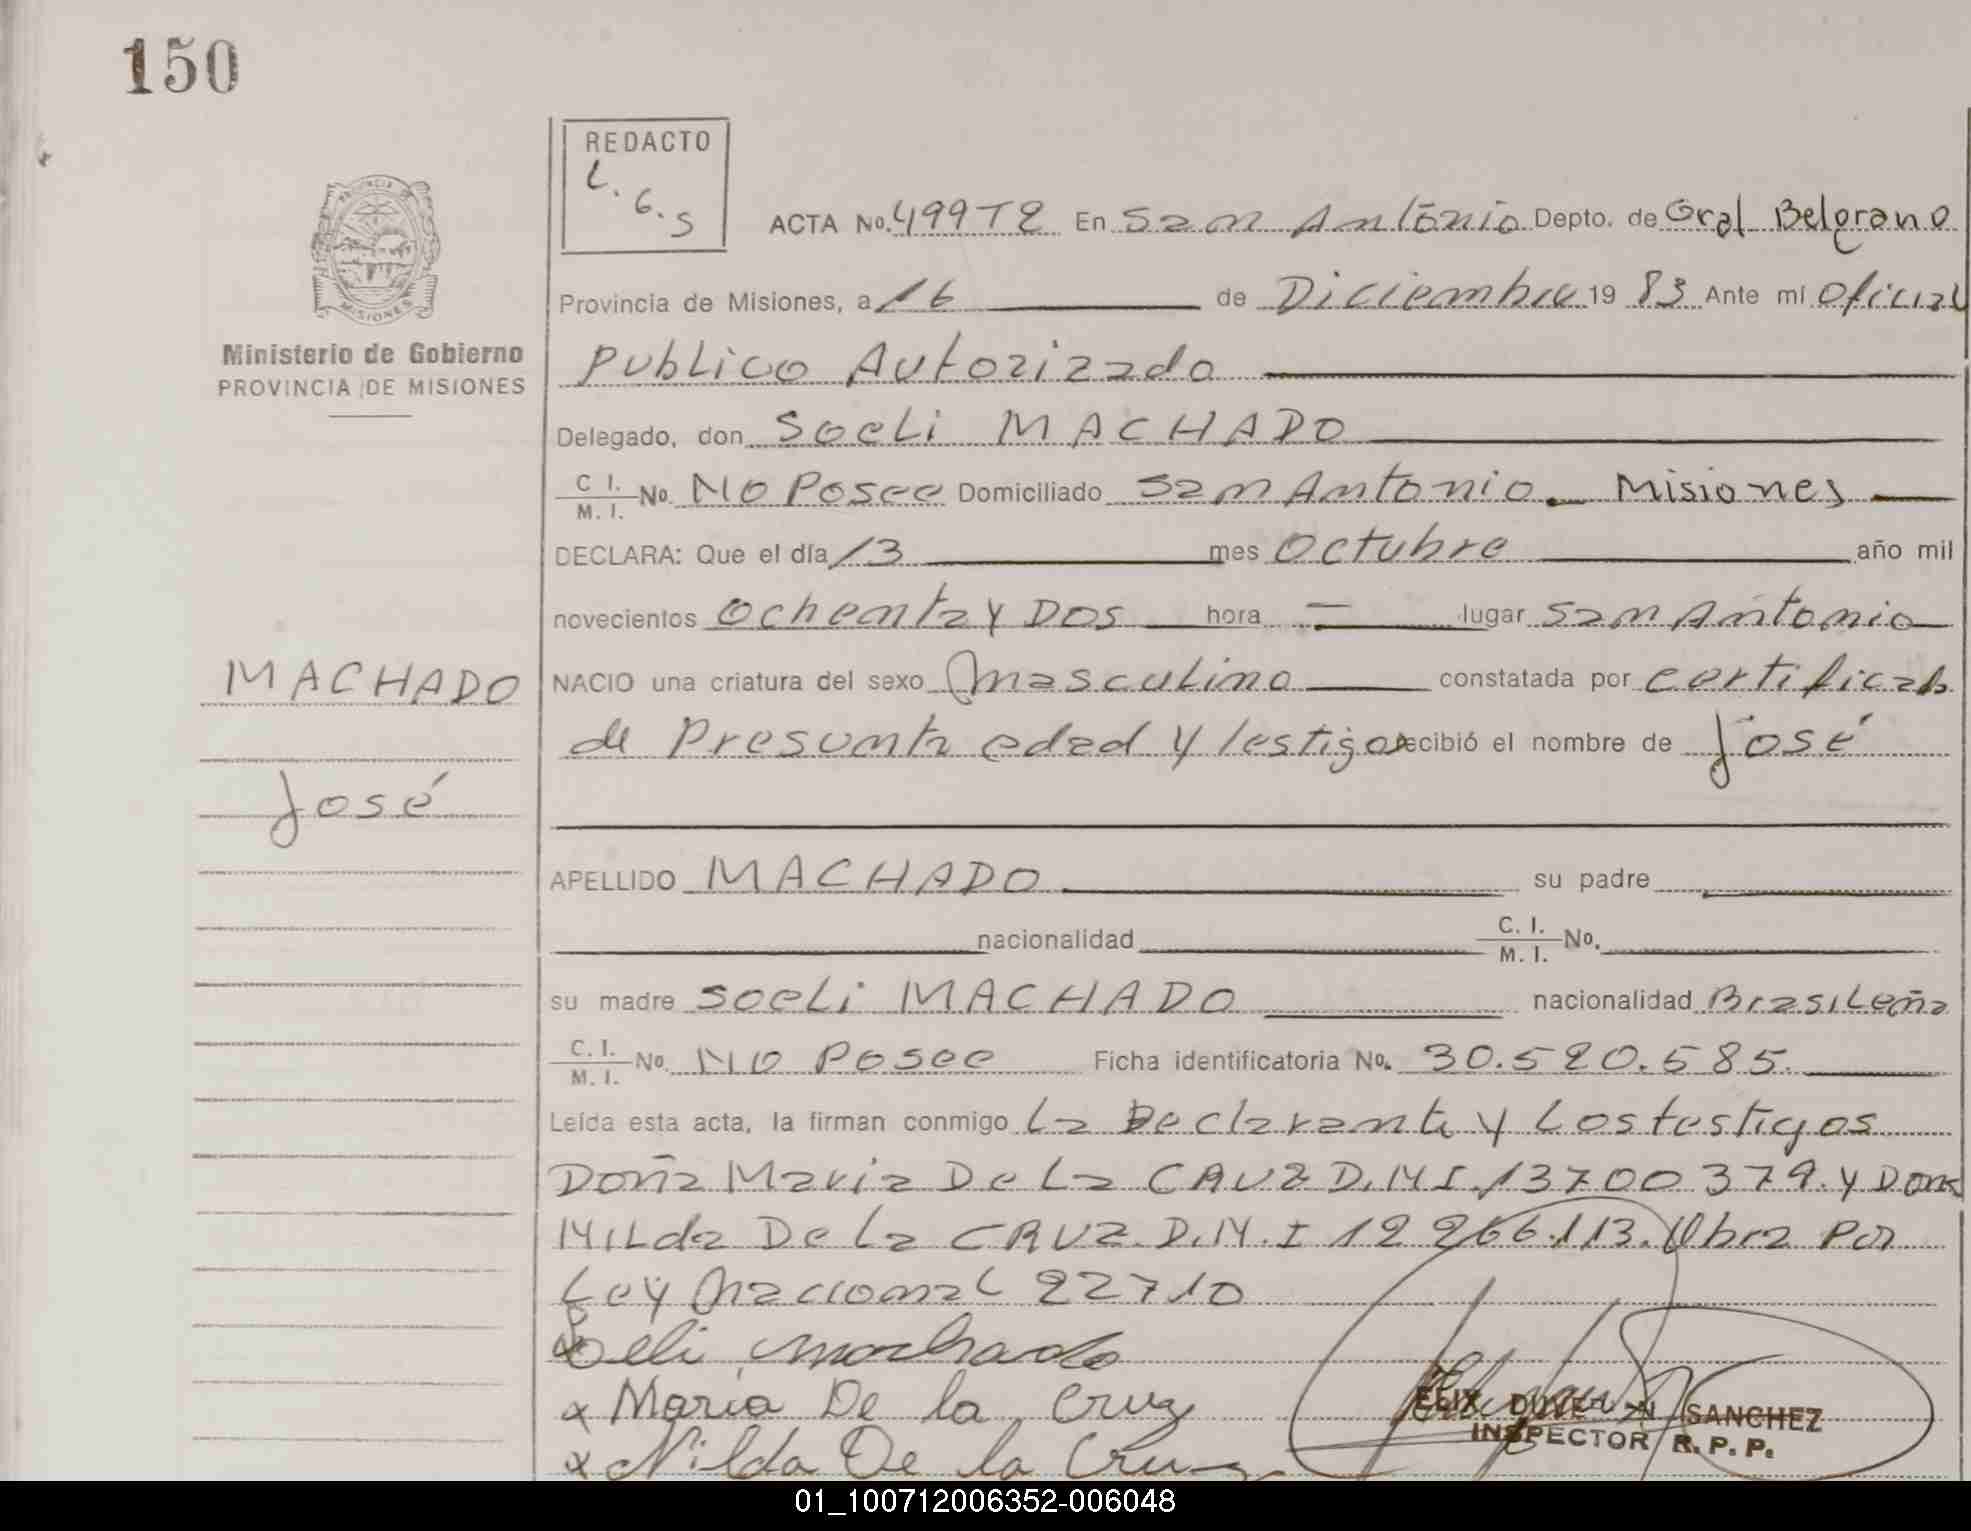 150
REDACTO
L.G.S
ACTA No. 499 T2 En San Antonio Depto. de Gral Belgrano
Provincia de Misiones, a 16 de Diciembre 19 83 Ante mí Oficial
Publico Autorizado
Delegado, don Soeli MACHADO
C I. / M. I. No. No Posee Domiciliado San Antonio. Misiones
DECLARA: Que el día 13 mes Octubre año mil
novecientos Ochenta y Dos hora — lugar San Antonio
NACIO una criatura del sexo Masculino constatada por certificado
de Presunta edad y testigos recibió el nombre de José
APELLIDO MACHADO su padre
nacionalidad C. I. / M. I. No.
su madre Soeli MACHADO nacionalidad Brasileña
C. I. / M. I. No. No Posee Ficha identificatoria No. 30.520.585.
Leída esta acta, la firman conmigo La Declarante y Los testigos
Doña Maria De La CRUZ D.M.I. 13700379. y Doña
Nilda De La CRUZ. D.M.I 12 266.113. Obra Por
Ley Nacional 22710
Maria De la Cruz
x Nilda De la Cruz
SANCHEZ
INSPECTOR R. P. P.
PROVINCIA DE MISIONES
Ministerio de Gobierno
PROVINCIA DE MISIONES
MACHADO
José
01_100712006352-006048